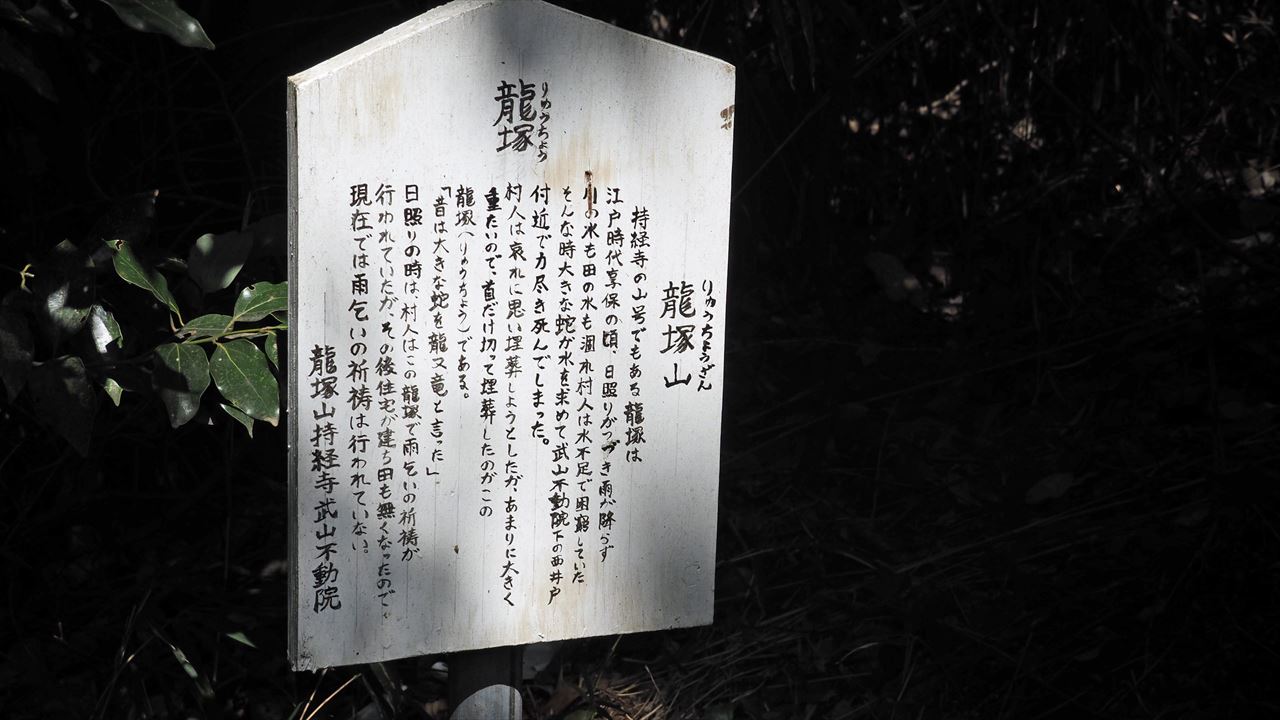 龍塚
りゅうちょう
龍塚山
りゅうちょうざん
持経寺の山号でもある龍塚は
江戸時代享保の頃、日照りがつづき雨が降らず
川の水も田の水も涸れ村人は水不足で困窮していた
そんな時大きな蛇が水を求めて武山不動院下の西井戸
付近で力尽き死んでしまった。
村人は哀れに思い埋葬しようとしたが、あまりに大きく
重たいので、首だけ切って埋葬したのがこの
龍塚(りゅうちょう)である。
「昔は大きな蛇を龍又竜と言った」
日照りの時は、村人はこの龍塚で雨乞いの祈祷が
行われていたが、その後住宅が建ち田も無くなったので、
現在では雨乞いの祈祷は行われていない。
龍塚山持経寺武山不動院